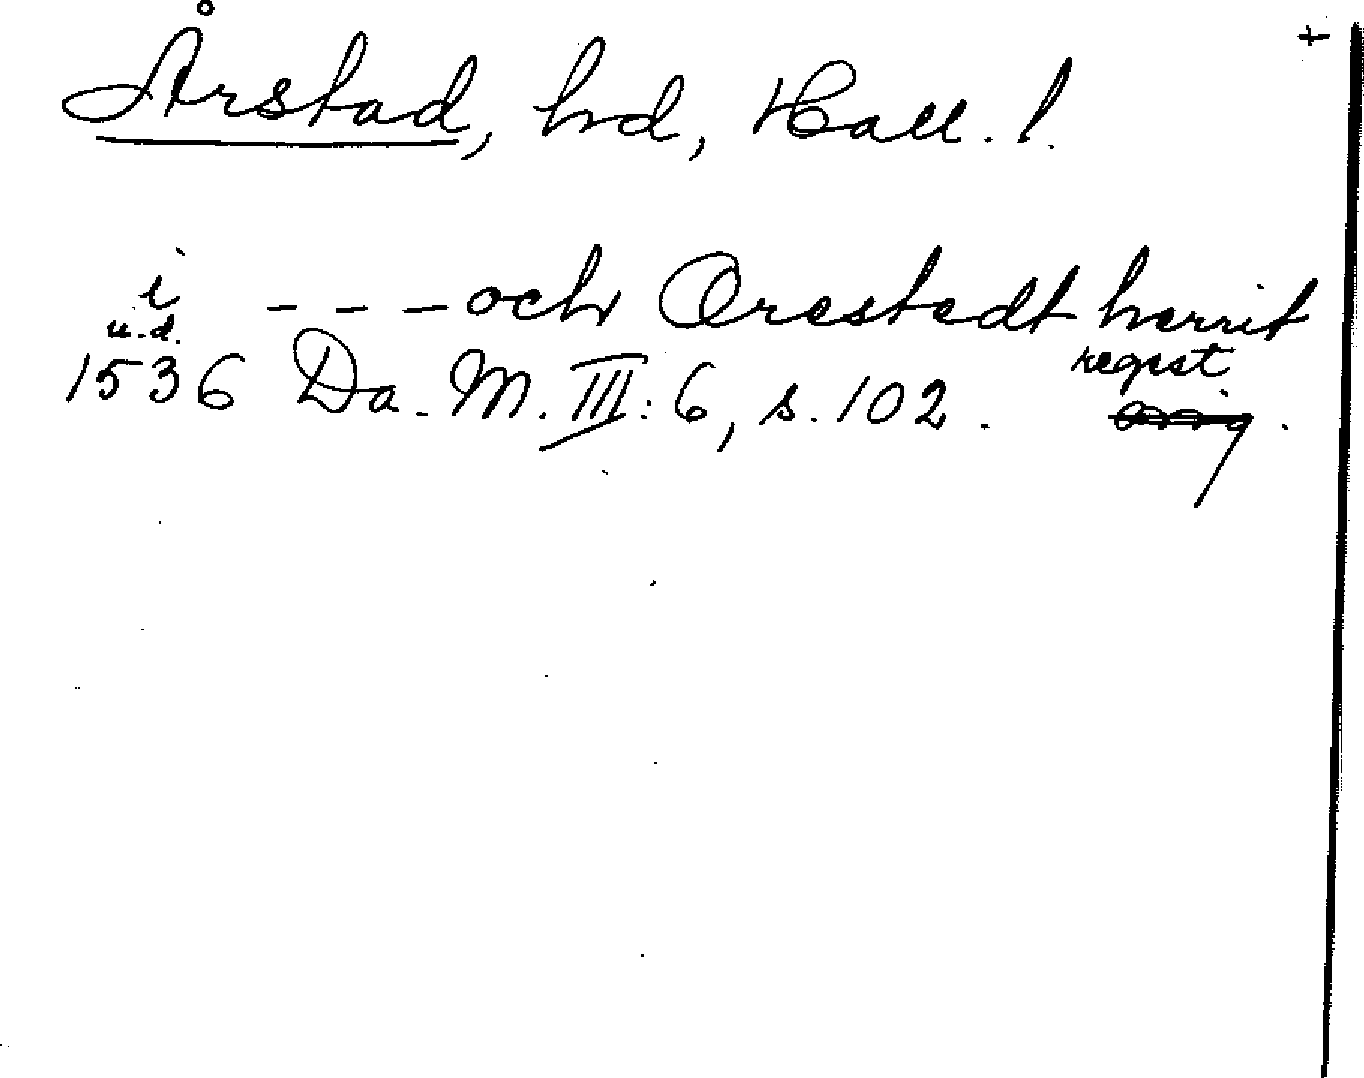 +
Årstad, hd, Hall. l.
i - - - och Orestedt herrit
u.d.
1536 Da. M. III: 6, s. 102. regist.